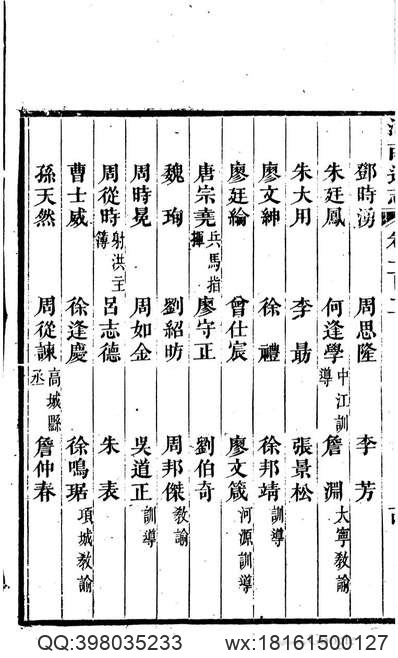 鄧時湧 周思隆 李芳
朱廷鳳 何逢學 中江訓導 詹淵 大寧教諭
朱大用 李 張景松
廖文紳 徐禮 徐邦靖 訓導
廖廷綸 曾仕宸 廖文箴 河源訓導
唐宗堯 兵馬指揮 廖守正 劉伯奇
魏珣 劉紹昉 周邦傑 教諭
周時晃 周如金 吳道正 訓導
周從時 射洪主簿 呂志德 朱表
曹士威 徐逢慶 徐鳴琚 項城教諭
孫天然 周從諫 高城縣丞 詹仲春
QQ:398035233 wx:18161500127